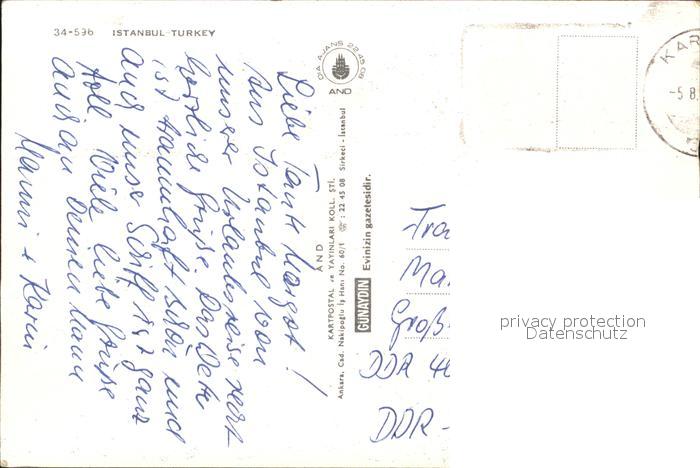 34-596 ISTANBUL-TURKEY
Liebe Tante Margot!
Aus Istanbul von
unserer Urlaubsreise herz
herzliche Grüße. Das Wetter
ist traumhaft schön und
auch unser Schiff ist ganz
toll. Viele liebe Grüße
auch an Deinen Mann
Manni + Karin
AND AJANS 22 45 08
AND
AND
KARTPOSTAL ve YAYINLARI KOLL. ŞTİ.
Ankara, Cad. Nakipoğlu İş Hanı No. 60/1 ☎: 22 45 08 Sirkeci - İstanbul
GÜNAYDIN Evinizin gazetesidir.
KAR
-5.8.
Ma
Groß
DDR 4
DDR -
privacy protection
Datenschutz